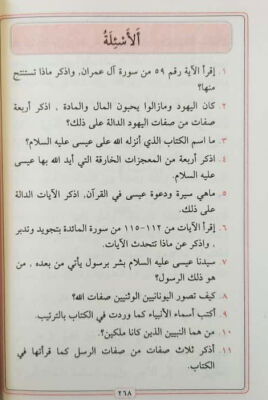 الأَسْئِلَةُ
١. إقرأ الآية رقم ٥٩ من سورة آل عمران، واذكر ماذا تستنتج
منها؟
٢. كان اليهود ومازالوا يحبون المال والمادة , اذكر أربعة
صفات من صفات اليهود الدالة على ذلك؟
٣. ما اسم الكتاب الذي أنزله الله على عيسى عليه السلام؟
٤. اذكر أربعة من المعجزات الخارقة التي أيد الله بها عيسى
عليه السلام.
٥. ماهي سيرة ودعوة عيسى في القرآن, اذكر الآيات الدالة
على ذلك.
٦. إقرأ الآيات من ١١٢–١١٥ من سورة المائدة بتجويد وتدبر
, واذكر عن ماذا تتحدث الآيات.
٧. سيدنا عيسى عليه السلام بشر برسول يأتي من بعده , من
هو ذلك الرسول؟
٨. كيف تصور اليونانيين الوثنيين صفات الله؟
٩. أكتب أسماء الأنبياء كما وردت في الكتاب بالترتيب.
١٠. من هما النبيين الذين كانا ملكين؟
١١. أذكر ثلاث صفات من صفات الرسل كما قرأتها في
الكتاب.
٢٦٨